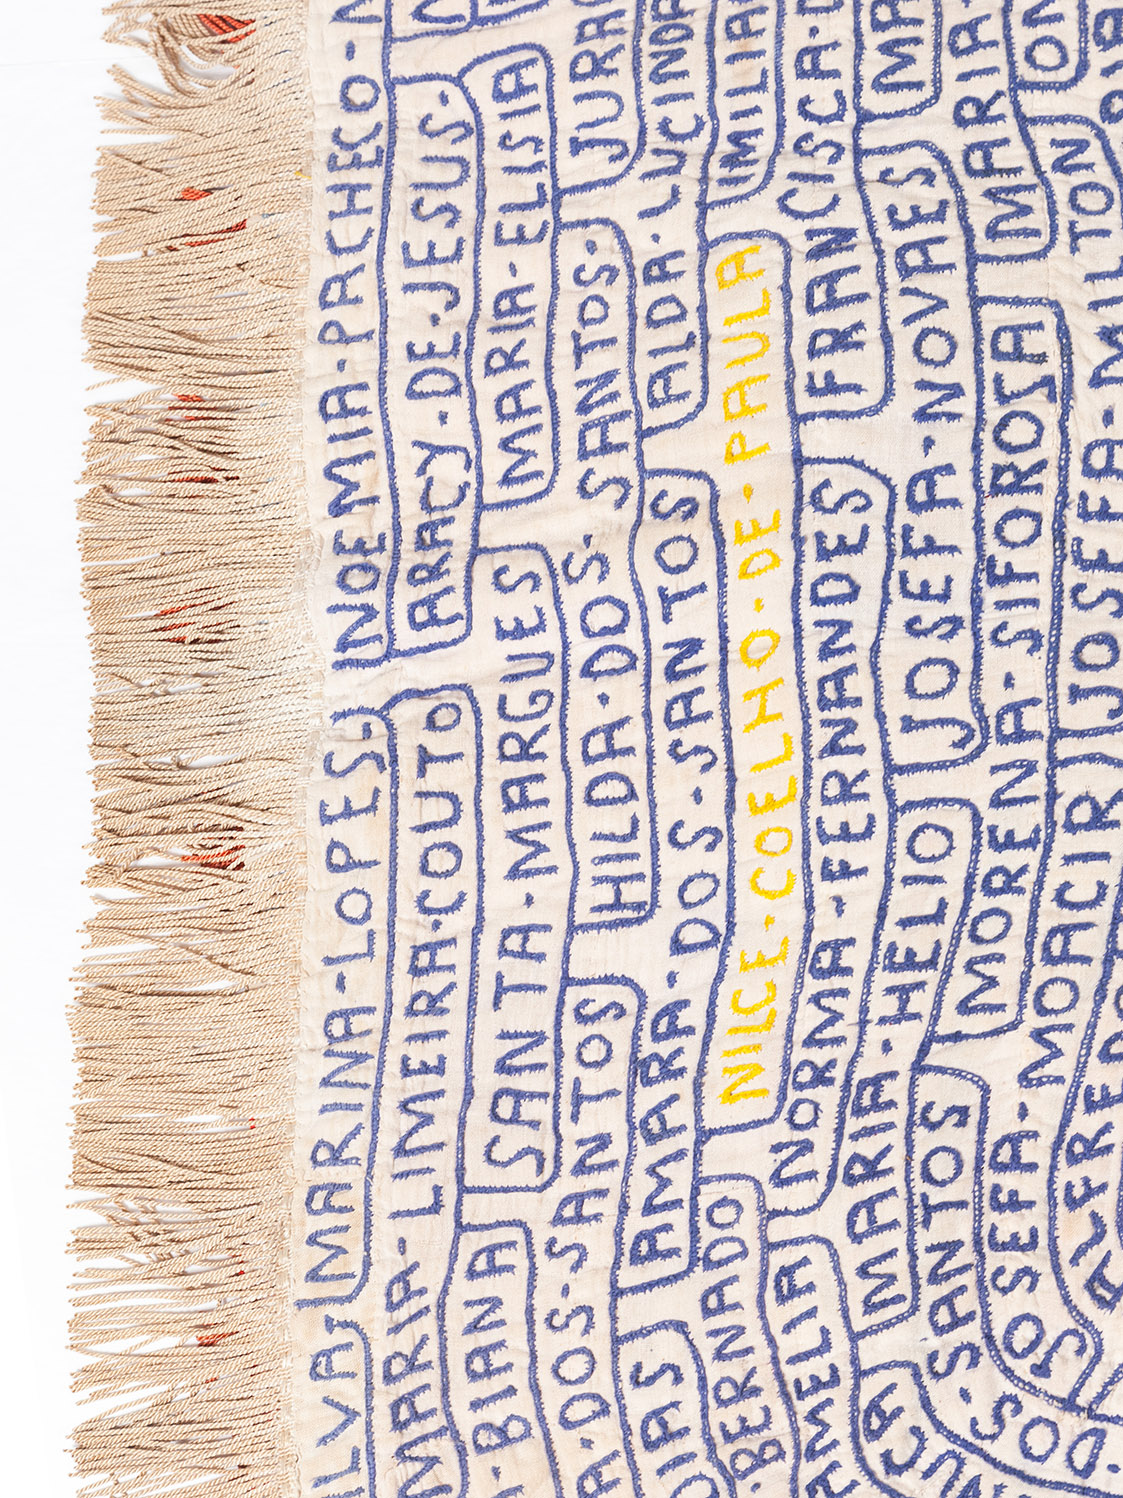 NOEMIA-PACHECO-
MARINA-LOPES-
ARACY-DE-JESUS-
MARIA-LIMEIRA-COUTO
MARIA-ELISIA
SANTA-MARGUES
BIANA
JURA
HILDA-DOS-SANTOS-
A-DOS-SANTOS
ALDA-LUCINDA
AMARA-DOS-SANTOS
DIAS
IMILIA
NILCE-COELHO-DE-PAULA
BERNADO
FRANCISCA-
NORMA-FERNANDES
AMELIA
JOSEFA-NOVAES
MARIA-HELIO
MARIA-
MORENA-SIFOROSA
DOS-SANTOS
MILTON
JOSEFA-
JOSEFA-MOACIR
ALFREDO